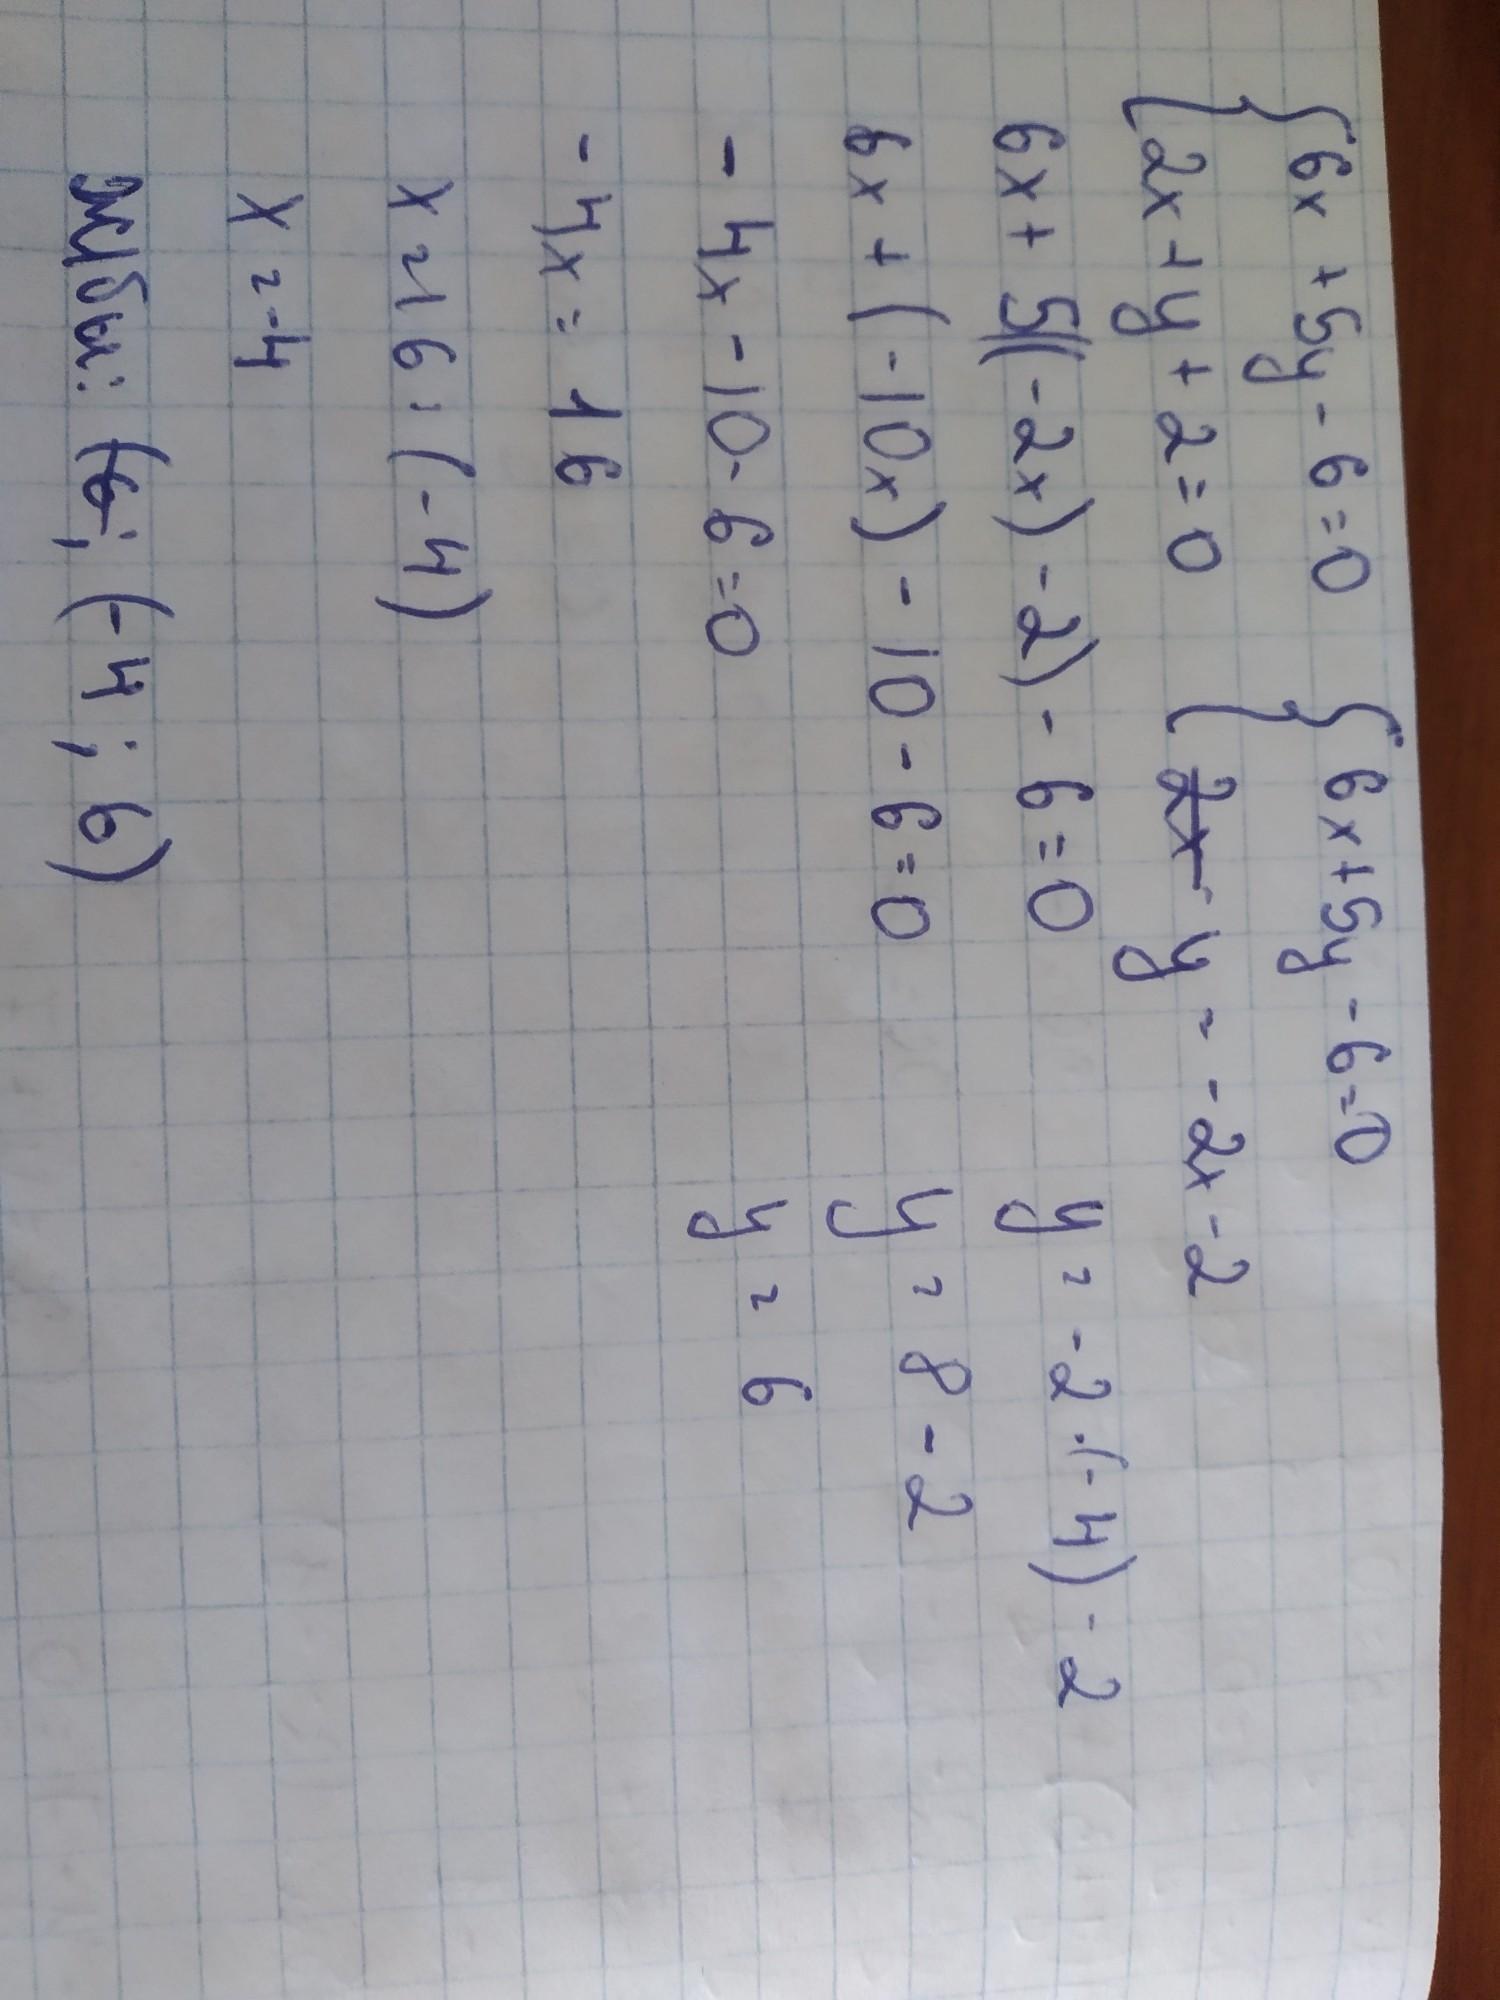 {6x + 5y - 6 = 0 {6x + 5y - 6 = 0
{2x + y + 2 = 0 {2x y = -2x - 2
6x + 5((-2x) - 2) - 6 = 0 y = -2 · (-4) - 2
6x + (-10x) - 10 - 6 = 0 y = 8 - 2
- 4x - 10 - 6 = 0 y = 6
- 4x = 16
x = 16 : (-4)
x = -4
(6; (-4; 6)